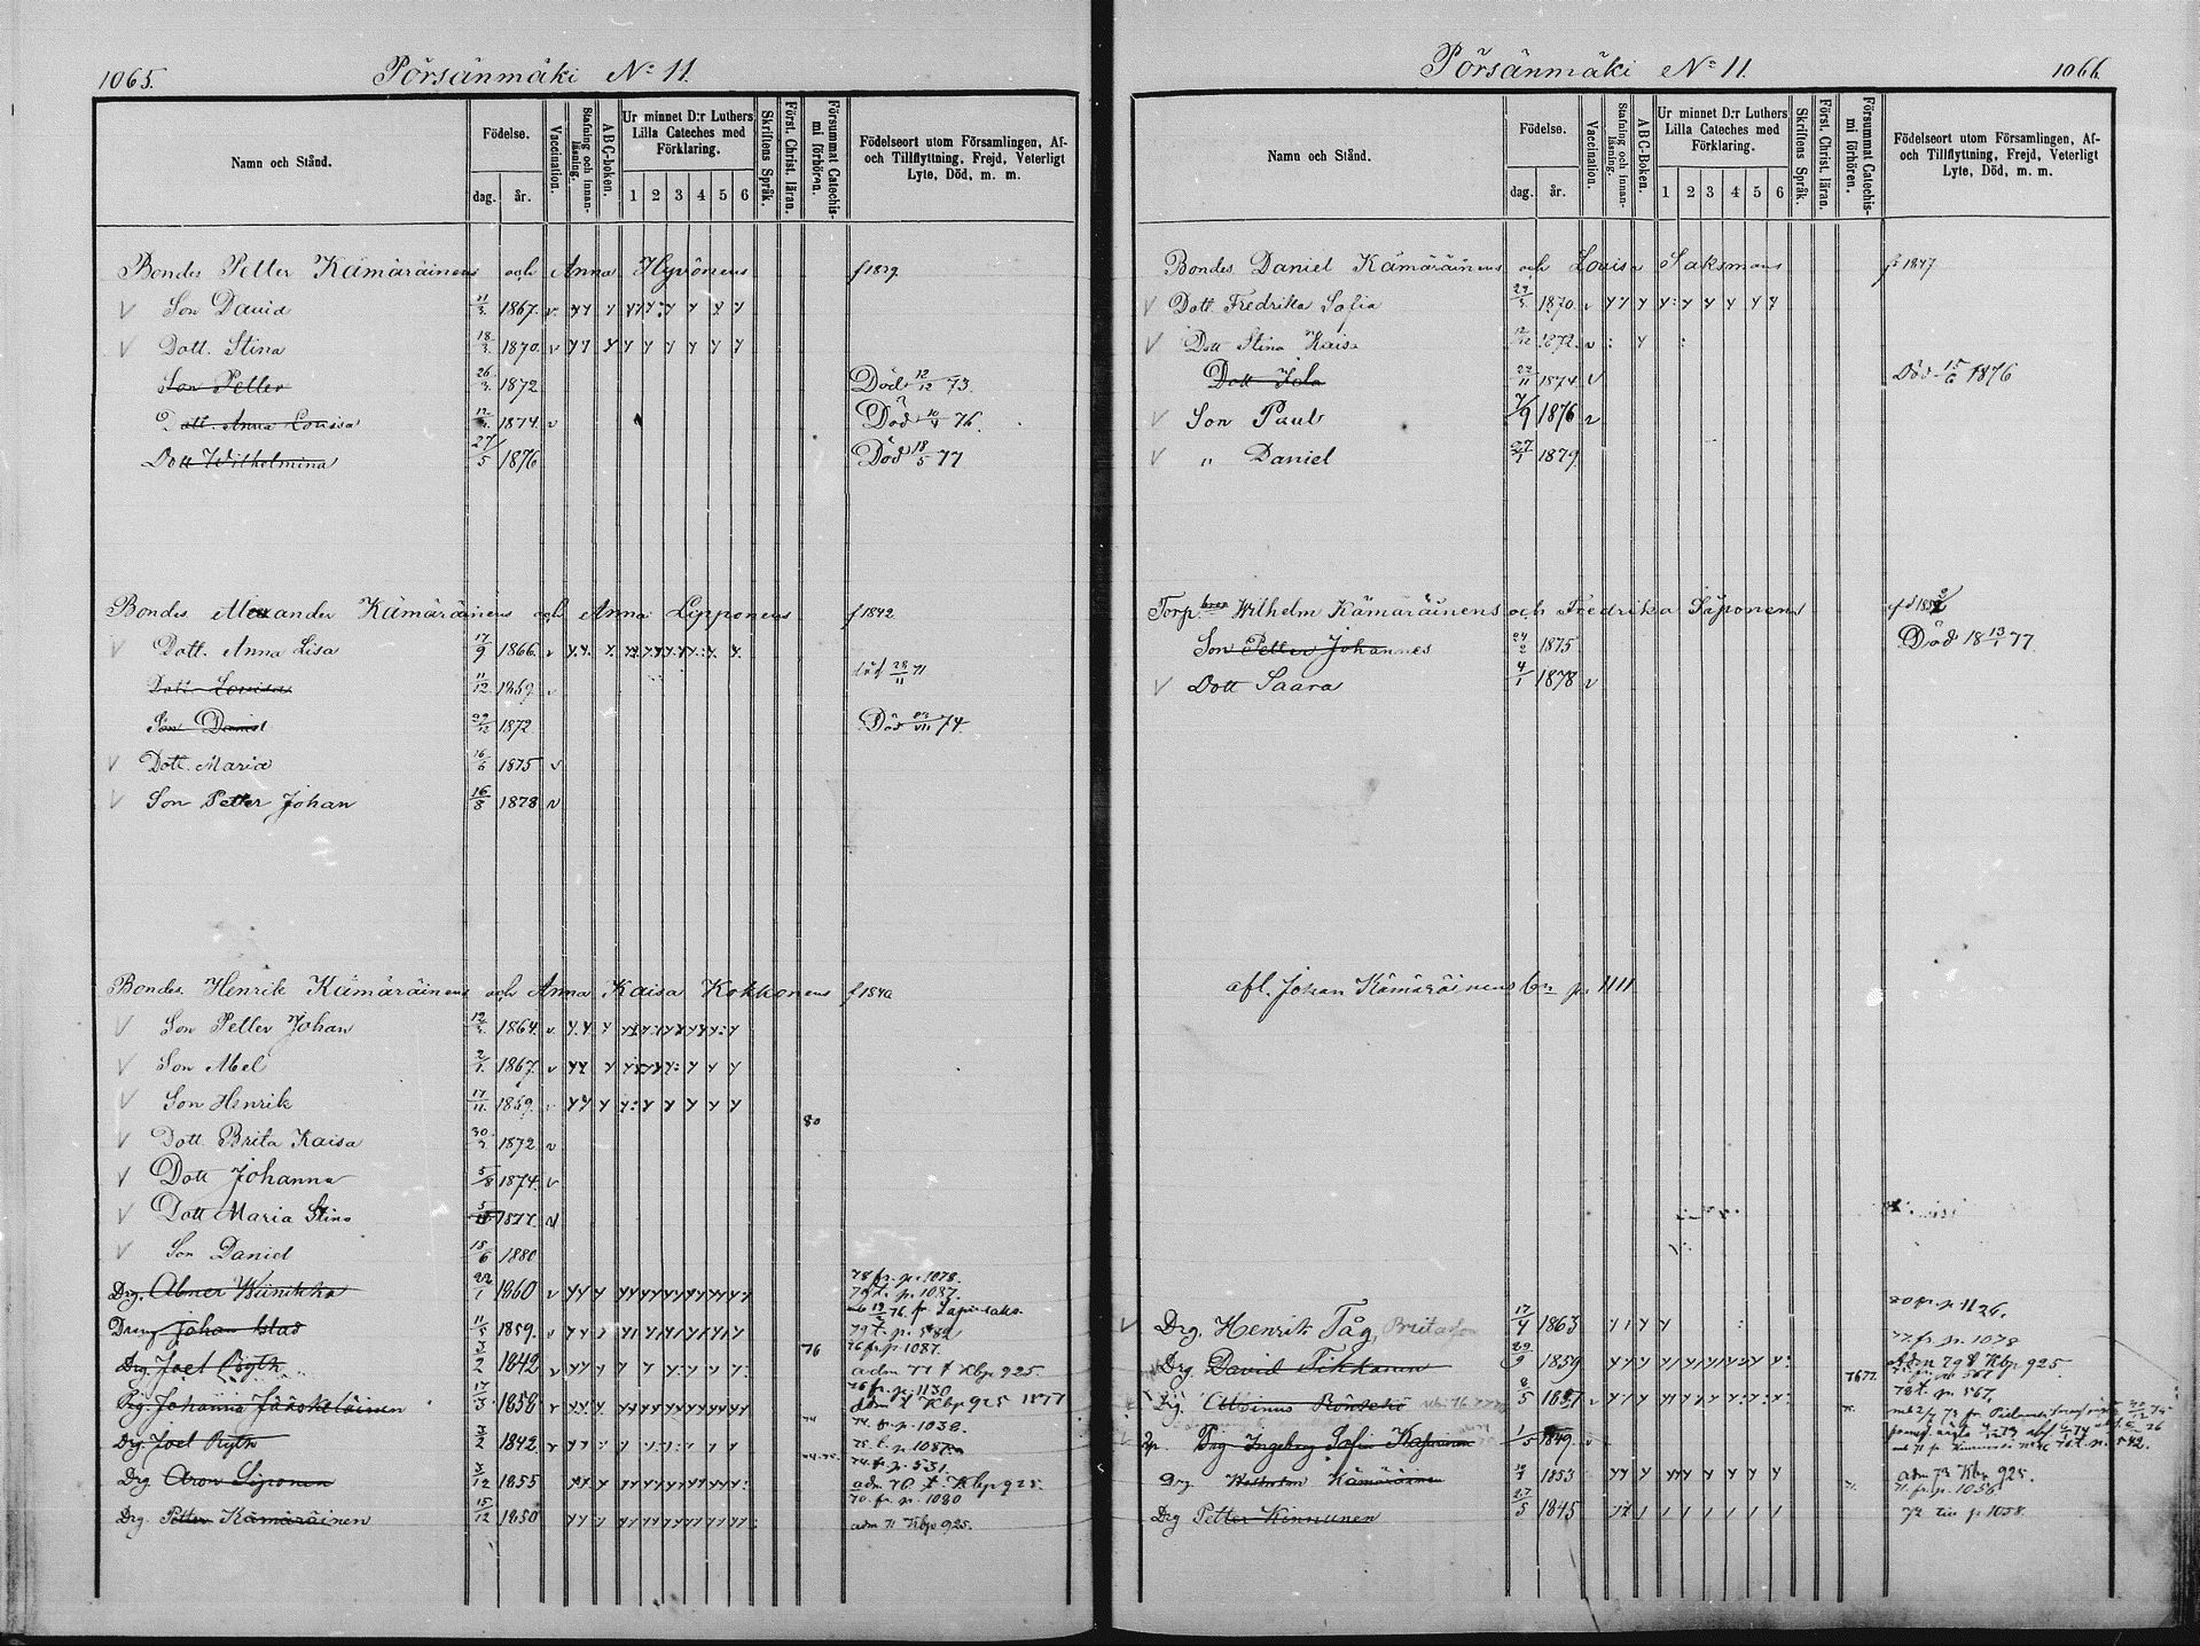 1065. Pörsänmäki No 11.
Namn och Stånd.
Födelse.
dag. år.
Vaccination.
Stafning och innanläsning.
ABC-boken.
Ur minnet D:r Luthers Lilla Cateches med Förklaring.
1 2 3 4 5 6
Skriftens Språk.
Först. Christ. läran.
Försummat Catechismi förhören.
Födelseort utom Församlingen, Af- och Tillflyttning, Frejd, Veterligt Lyte, Död, m. m.
Bondes Petter Kämäräinens och Anna Hyvönens f 1839
Son David 11/3 1867. v
Dott. Stina 18/3 1870. v
Son Petter 26/3 1872 Död 12/12 73.
Dott. Anna Lovisa 1874. v Död 76.
Dott Wilhelmina 27/5 1876 Död 18/5 77
Bondes Alexander Kämäräinens och Anna Lipponens f 1842
Dott. Anna Lisa 17/9 1866. v
Dott Lovisa 11/12 1869. död 28/11 71
Son Daniel 29/12 1872 Död 74.
Dott. Maria 16/6 1875 v
Son Petter Johan 16/8 1878 v
Bondes Henrik Kämäräinens och Anna Kaisa Kokkonens f 1840
Son Petter Johan 1864. v
Son Abel 2/1 1867. v
Son Henrik 17/11 1869. 80
Dott. Brita Kaisa 1872 v
Dott Johanna 5/8 1874. v
Dott Maria Stina 1877. v
Son Daniel 15/6 1880
Drg. Abner Wänskä 22/1 1860 v 78 fr. p. 1078. 79 t. p. 1087.
Dreng Johan 11/5 1859. v 79 t. p.
Drg. Joel Ryth 3/2 1842 v 76 76 fr. p. 1087. adm 77 t Kbp 925.
Pig. Johanna Jääskeläinen 17/3 1858 v 76 fr. p. 1130 adm t Kbp 925 1877
Drg. Joel Ryth 3/2 1842 v 74 74. fr. p. 1038. 75. t. p. 1087.
Drg Aron Liponen 3/12 1855 74. fr. p. 531. adm 76. t. Kbp 925.
Drg. Petter Kämäräinen 15/12 1850 70. fr. p. 1080 adm 71 Kbp 925.
Pörsänmäki No 11. 1066.
Namn och Stånd.
Födelse.
dag. år.
Vaccination.
Stafning och innanläsning.
ABC-Boken.
Ur minnet D:r Luthers Lilla Cateches med Förklaring.
1 2 3 4 5 6
Skriftens Språk.
Först. Christ. läran.
Försummat Catechismi förhören.
Födelseort utom Församlingen, Af- och Tillflyttning, Frejd, Veterligt Lyte, Död, m. m.
Bondes Daniel Kämäräinens och Louisa Saksmans f. 1847
Dott. Fredrika Sofia 1870. v
Dott Stina Kaisa 12/12 1872. v
Dott 22/11 1874. v Död 15/6 1876
Son Paul 7/9 1876 v
" Daniel 27/1 1879.
Torp. Wilhelm Kämäräinens och Fredrika Säponens
Son Petter Johannes 24/2 1875 Död 18 13/1 77.
Dott Saara 4/1 1878 v
afl. Johan Kämäräinens bn p. 1111
Drg. Henrik Tåg, 17/4 1863 80 fr. p. 1126.
Drg. David Tikkanen 29/9 1859 77. fr. p. 1078 Adm 79 t Kbp 925.
Drg. 8/5 78 t. p. 567.
Pig Ingeborg Sofia 1/5 1849. v
Drg. Kämäräinen 1853 adm 73 Kbp 925.
Drg Petter Kinnunen 27/5 1845 71. fr. p. 1056 72 till p 1058.